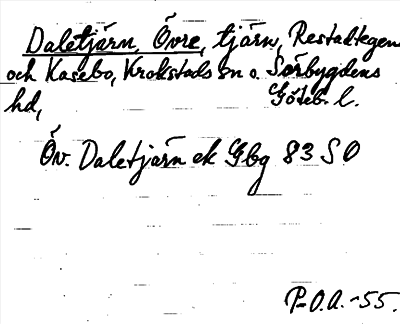 Daletjärn, Övre, tjärn, Restadtegen
och Kasebo, Krokstads sn o. Sörbygdens
hd, Göteb. l.
Öv. Daletjärn ek Gbg 83 S O
P-O.A.-55.